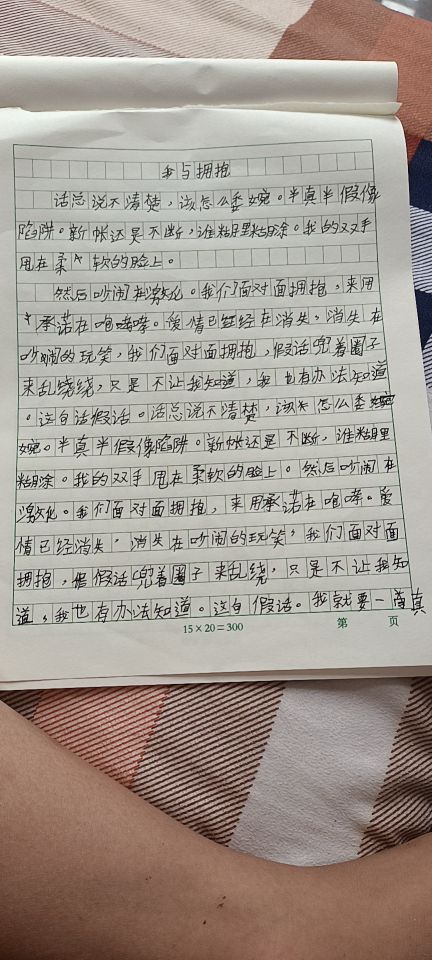 我与拥抱
话总说不清楚，该怎么委婉。半真半假像
陷阱。新帐还是不断，谁糊里糊涂。我的双手
甩在柔软的脸上。
然后吵闹在激化。我们面对面拥抱，来用
承诺在咆哮。爱情已经在消失，消失在
吵闹的玩笑，我们面对面拥抱，假话兜着圈子
来乱绕绕，只是不让我知道，我也有办法知道
。这白话假话。话总说不清楚，该怎么委
婉。半真半假像陷阱。新帐还是不断，谁糊里
糊涂。我的双手甩在柔软的脸上。然后吵闹在
激化。我们面对面拥抱，来用承诺在咆哮。爱
情已经消失，消失在吵闹的玩笑，我们面对面
拥抱，假话兜着圈子来乱绕，只是不让我知
道，我也有办法知道。这白假话。我就要一真
15×20=300 第 页